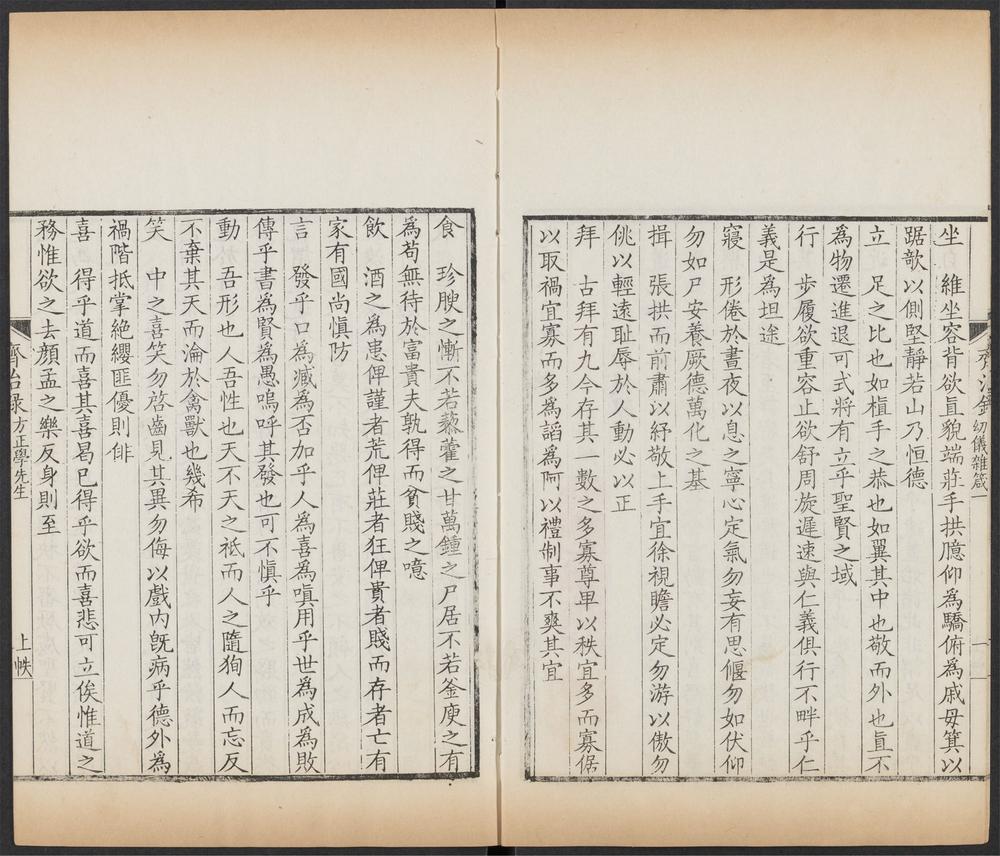 齊治錄
幼儀雜箴
一
坐　維坐容背欲直貌端莊手拱臆仰為驕俯為戚毋箕以
踞欹以側堅靜若山乃恒德
立　足之比也如植手之恭也如翼其中也敬而外也直不
為物遷進退可式將有立乎聖賢之域
行　步履欲重容止欲舒周旋遲速與仁義俱行不畔乎仁
義是為坦途
寢　形倦於晝夜以息之寧心定氣勿妄有思偃勿如伏仰
勿如尸安養厥德萬化之基
揖　張拱而前肅以紓敬上手宜徐視瞻必定勿游以傲勿
佻以輕遠耻辱於人動必以正
拜　古拜有九今存其一數之多寡尊卑以秩宜多而寡倨
以取禍宜寡而多為諂為阿以禮制事不爽其宜
食　珍腴之慚不若藜藿之甘萬鍾之尸居不若釜庾之有
為苟無待於富貴夫孰得而貧賤之噫
飲　酒之為患俾謹者荒俾莊者狂俾貴者賤而存者亡有
家有國尚慎防
言　發乎口為臧為否加乎人為喜為嗔用乎世為成為敗
傳乎書為賢為愚嗚呼其發也可不慎乎
動　吾形也人吾性也天不天之袛而人之隨狥人而忘反
不棄其天而淪於禽獸也幾希
笑　中之喜笑勿啓齒見其異勿侮以戲内旣病乎德外為
禍階抵掌絶纓匪優則俳
喜　得乎道而喜其喜曷已得乎欲而喜悲可立俟惟道之
務惟欲之去顔孟之樂反身則至
齊治錄
方正學先生
上帙